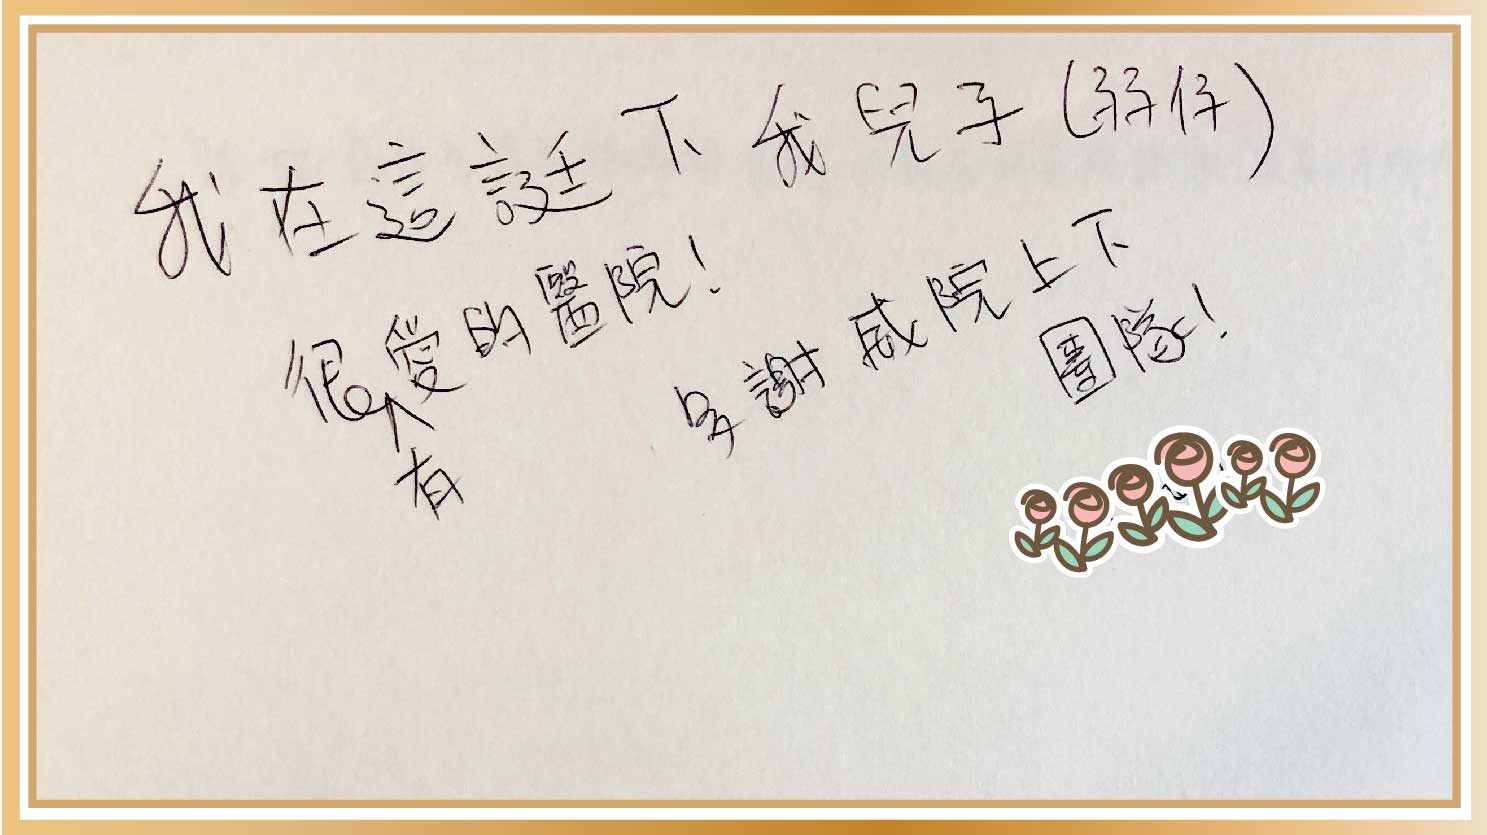 我在這誕下我兒子(孖仔)
很有愛的醫院!
多謝威院上下
團隊!